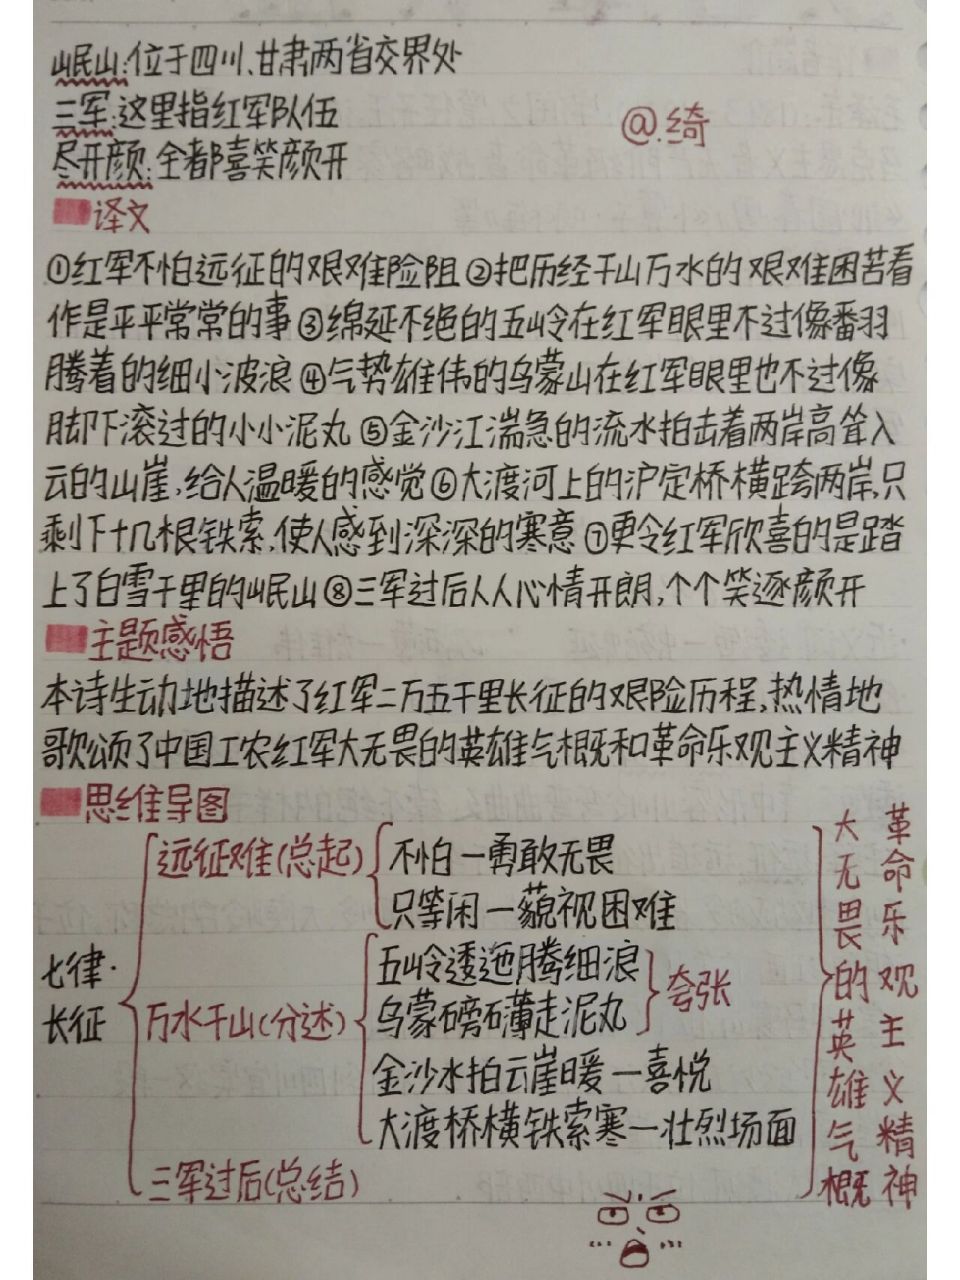 岷山:位于四川、甘肃两省交界处
三军:这里指红军队伍
@.绮
尽开颜:全都喜笑颜开
译文
①红军不怕远征的艰难险阻②把历经千山万水的艰难困苦看
作是平平常常的事③绵延不绝的五岭在红军眼里不过像翻羽
腾着的细小波浪④气势雄伟的乌蒙山在红军眼里也不过像
脚下滚过的小小泥丸⑤金沙江湍急的流水拍击着两岸高耸入
云的山崖,给人温暖的感觉⑥大渡河上的沪定桥横跨两岸,只
剩下十几根铁索,使人感到深深的寒意⑦更令红军欣喜的是踏
上了白雪千里的岷山⑧三军过后人人心情开朗,个个笑逐颜开
主题感悟
本诗生动地描述了红军二万五千里长征的艰险历程,热情地
歌颂了中国工农红军大无畏的英雄气概和革命乐观主义精神
思维导图
七律·
长征
远征难(总起)
不怕一勇敢无畏
只等闲一藐视困难
万水千山(分述)
五岭逶迤腾细浪
乌蒙磅礴走泥丸
夸张
金沙水拍云崖暖一喜悦
大渡桥横铁索寒一壮烈场面
三军过后(总结)
大无畏的英雄气概
革命乐观主义精神